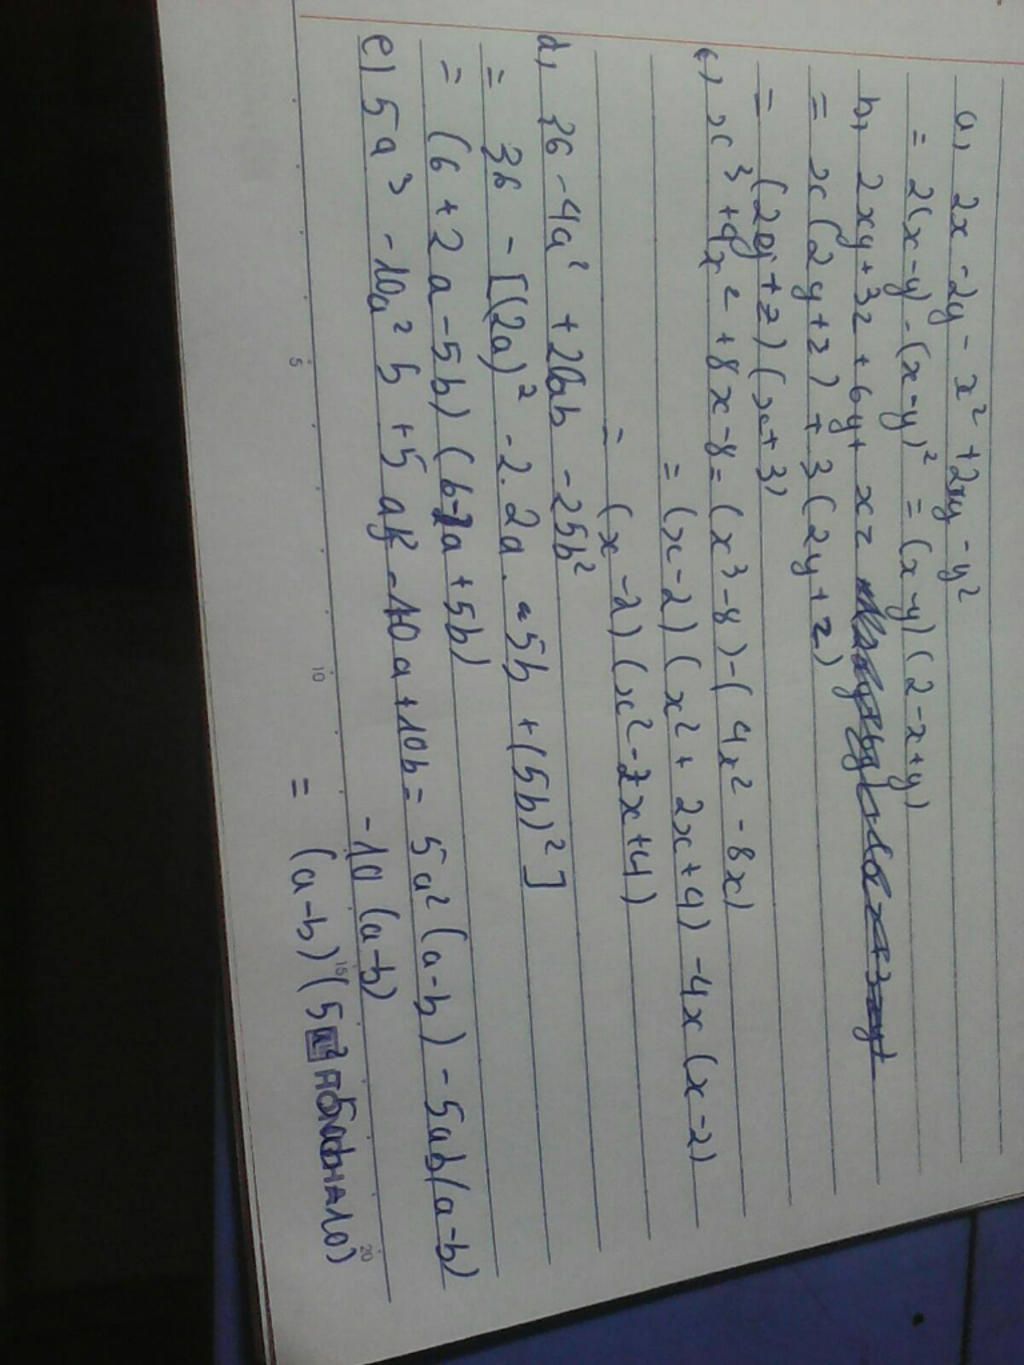 a, 2x - 2y - x² + 2xy - y²
= 2(x-y) - (x-y)² = (x-y)(2-x+y)
b, 2xy + 3z + 6y + xz
= x(2y+z) + 3(2y+z)
= (2y+z)(x+3)
c, x³ + 4x² + 8x - 8 = (x³-8) - (4x² - 8x)
= (x-2)(x² + 2x+4) - 4x(x-2)
= (x-2)(x²-2x+4)
d, 36 - 4a² + 20ab - 25b²
= 36 - [(2a)² - 2. 2a. 5b + (5b)²]
= (6 + 2a - 5b)(6-2a+5b)
e, 5a³ - 10a²b + 5ab² - 10a + 10b = 5a²(a-b) - 5ab(a-b)
-10(a-b)
= (a-b)(5a²
5
10
15
20